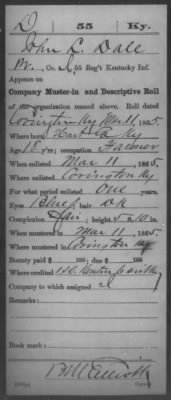 D | 55 | Ky.
John L. Dale
Pvt., Co. I, 55 Reg't Kentucky Inf.
Appears on
Company Muster-in and Descriptive Roll
of the organization named above. Roll dated
Covington Ky Mar 11, 1865.
Where born Harrison Co Ky
Age 18 y'rs; occupation Farmer
When enlisted Mar 11, 1865.
Where enlisted Covington Ky
For what period enlisted One years.
Eyes Blue; hair Dk
Complexion Fair; height 5 ft. 10 in.
When mustered in Mar 11, 1865.
Where mustered in Covington Ky
Bounty paid $ 100; due $ 100
Where credited
Company to which assigned I
Remarks:
Book mark:
Copyist.